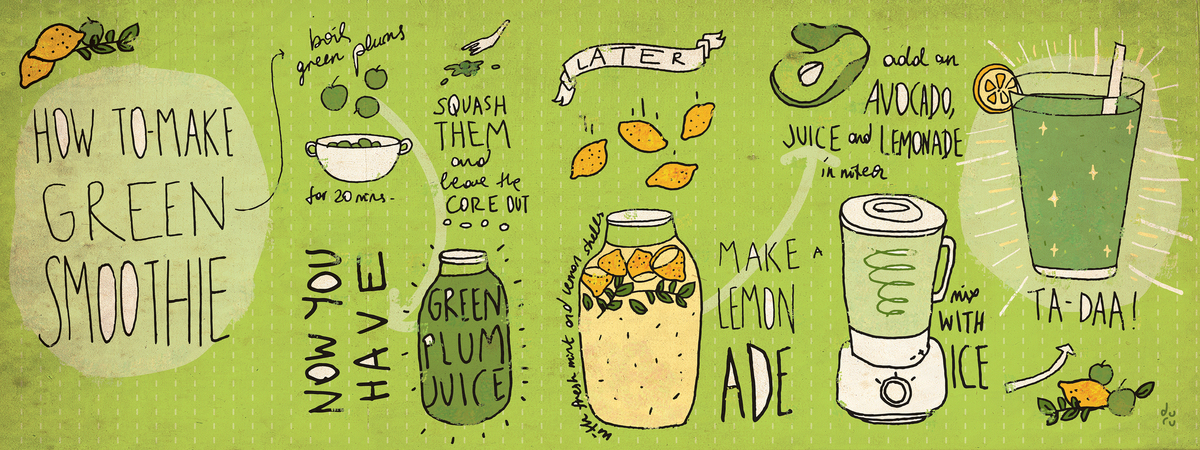 HOW TO-MAKE
GREEN
SMOOTHIE
boil
green plums
for 20 mins-
SQUASH
THEM
and
leave the
CORE OUT
NOW YOU
HAVE
GREEN
PLUM
JUICE
LATER
with fresh mint and lemon shells
MAKE A
LEMON
ADE
add an
AVOCADO,
JUICE and LEMONADE
in mixer
mix
WITH
ICE
TA-DAA!
duru